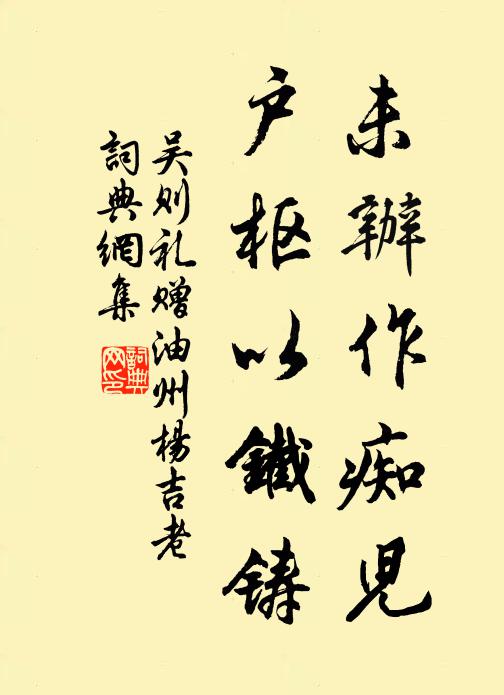 未辦作痴兒
户枢以鐵鋳
吴则礼赠油州楊吉老
詞典網集
詞典网印